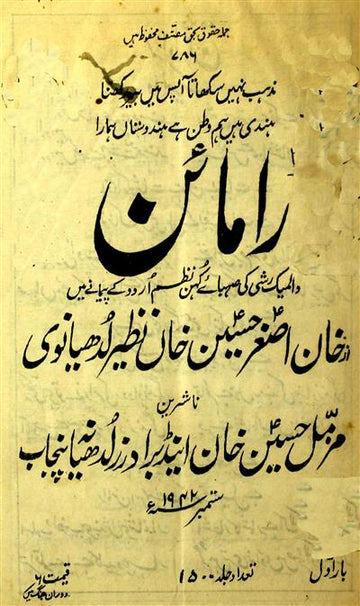 جملہ حقوق بحق مصنف محفوظ ہیں
۷۸۶
مذہب نہیں سکھاتا آپس میں بیر رکھنا
ہندی ہیں ہم وطن ہے ہندوستاں ہمارا
رامائن
والمیک رشی کی صہبائے کہن نظم اردو کے پیمانے میں
از خان اصغر حسین خان نظیر لدھیانوی
ناشرین
مزمل حسین خان اینڈ برادرز لدھیانہ پنجاب
ستمبر ۱۹۴۲ء
بار اول
تعداد جلد ۱۵۰۰
قیمت ۶